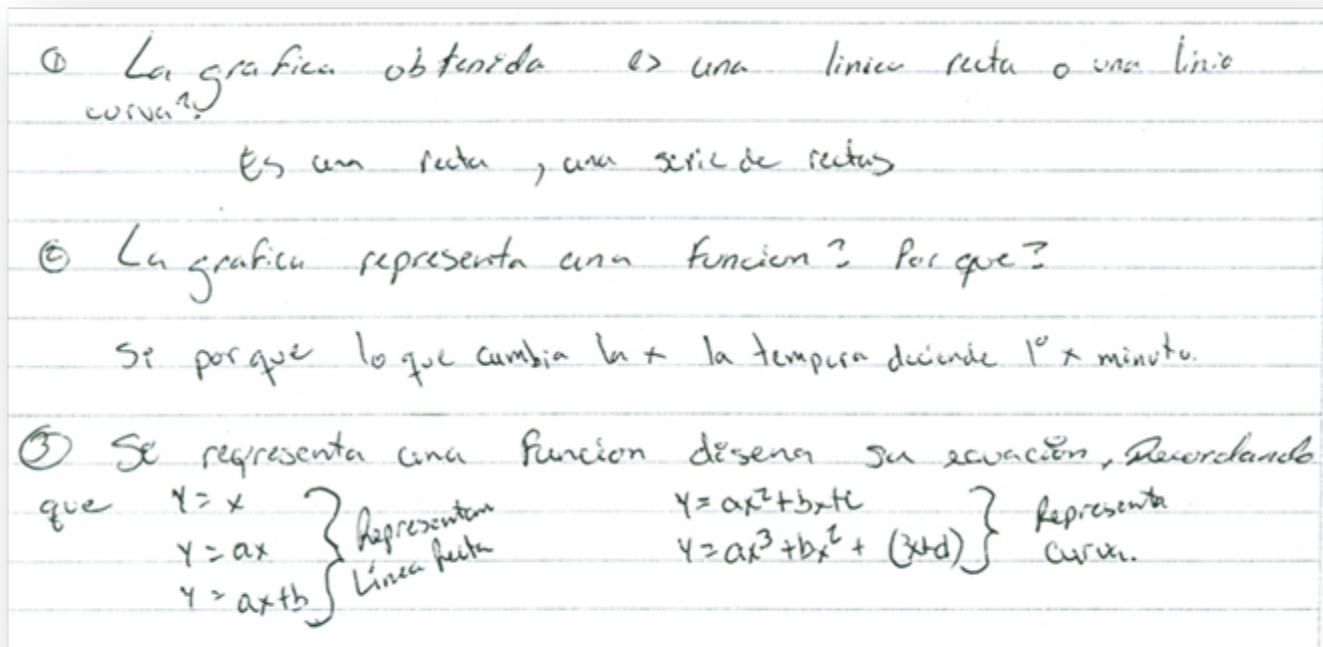 ① La grafica obtenida es una linea recta o una linia
curva?
Es una recta, una serie de rectas
② La grafica representa una funcion? Por que?
Si porque lo que cambia la x la tempera deciende 1° x minuto.
③ Si representa una funcion disena su ecuación, Recordando
que y=x y=ax²+bx+c
y=ax } Representan Línea Recta y=ax³+bx²+(3x+d) } Representa curva.
y=ax+b